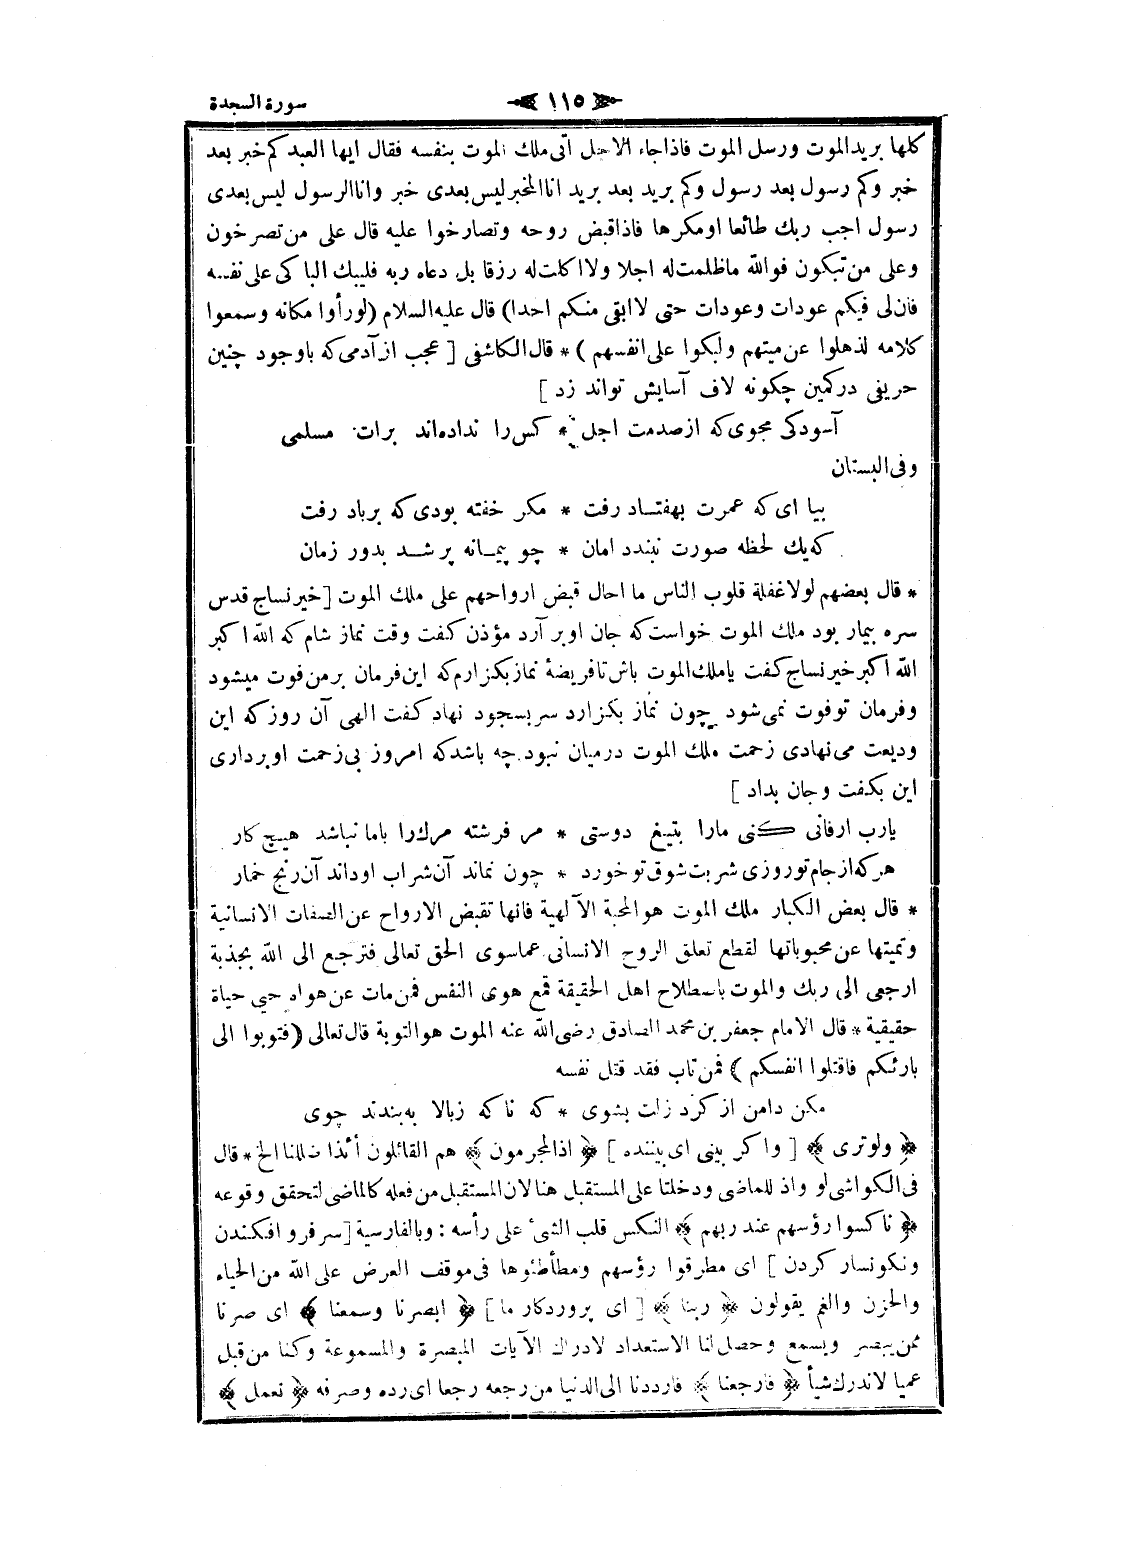 سورة السجدة ١١٥
كلها بريد الموت ورسل الموت فاذا جاء الاجل أتى ملك الموت بنفسه فقال ايها العبد كم خبر بعد
خبر وكم رسول بعد رسول وكم بريد بعد بريد انا المخبر ليس بعدى خبر وانا الرسول ليس بعدى
رسول اجب ربك طائعا او مكرها فاذا قبض روحه وتصارخوا عليه قال على من تصرخون
وعلى من تبكون فوالله ما ظلمت له اجلا ولا اكلت له رزقا بل دعاه ربه فليبك الباكى على نفسه
فان لى فيكم عودات وعودات حتى لا ابقى منكم احدا) قال عليه السلام (لو رأوا مكانه وسمعوا
كلامه لذهلوا عن ميتهم ولبكوا على انفسهم) * قال الكاشفى [عجب از آدمى كه باوجود چنين
حريفى در كمين چكونه لاف آسايش تواند زد]
آسودكى مجوى كه از صدمت اجل * كس را نداده اند برات مسلمى
وفى البستان
بيا اى كه عمرت بهفتاد رفت * مكر خفته بودى كه برباد رفت
كه يك لحظه صورت نبندد امان * چو پيمانه پر شد بدور زمان
* قال بعضهم لولا غفلة قلوب الناس ما احال قبض ارواحهم على ملك الموت [خير نساج قدس
سره بيمار بود ملك الموت خواست كه جان او بر آرد مؤذن كفت وقت نماز شام كه الله اكبر
الله اكبر خير نساج كفت يا ملك الموت باش تا فريضهٔ نماز بكزارم كه اين فرمان بر من فوت ميشود
وفرمان تو فوت نمى شود چون نماز بكزارد سر بسجود نهاد كفت الهى آن روز كه اين
وديعت مى نهادى زحمت ملك الموت درميان نبود چه باشد كه امروز بى زحمت او بردارى
اين بكفت وجان بداد]
يارب ارفانى كنى مارا بتيغ دوستى * مر فرشته مرك را باما نباشد هيچ كار
هر كه از جام تو روزى شربت شوق تو خورد * چون نماند آن شراب او داند آن رنج خمار
* قال بعض الكبار ملك الموت هو المحبة الآلهية فانها تقبض الارواح عن الصفات الانسانية
وتميتها عن محبوباتها لقطع تعلق الروح الانسانى عما سوى الحق تعالى فترجع الى الله بجذبة
ارجعى الى ربك والموت باصطلاح اهل الحقيقة قمع هوى النفس فمن مات عن هواه حيي حياة
حقيقية * قال الامام جعفر بن محمد الصادق رضى الله عنه الموت هو التوبة قال تعالى (فتوبوا الى
بارئكم فاقتلوا انفسكم) فمن تاب فقد قتل نفسه
مكن دامن از كرد زلت بشوى * كه ناكه زبالا به بندند جوى
﴿ولو ترى﴾ [واكر بينى اى بيننده] ﴿اذ المجرمون﴾ هم القائلون أئذا ضللنا الخ * قال
فى الكواشى لو واذ للماضى ودخلتا على المستقبل هنا لان المستقبل من فعله كالماضى لتحقق وقوعه
﴿ناكسوا رؤسهم عند ربهم﴾ النكس قلب الشئ على رأسه : وبالفارسية [سر فرو افكندن
ونكونسار كردن] اى مطرقوا رؤسهم ومطأطئوها فى موقف العرض على الله من الحياء
والحزن والغم يقولون ﴿ربنا﴾ [اى پروردكار ما] ﴿ابصرنا وسمعنا﴾ اى صرنا
ممن يبصر ويسمع وحصل لنا الاستعداد لادراك الآيات المبصرة والمسموعة وكنا من قبل
عميا لا ندرك شيأ ﴿فارجعنا﴾ فارددنا الى الدنيا من رجعه رجعا اى رده وصرفه ﴿نعمل﴾